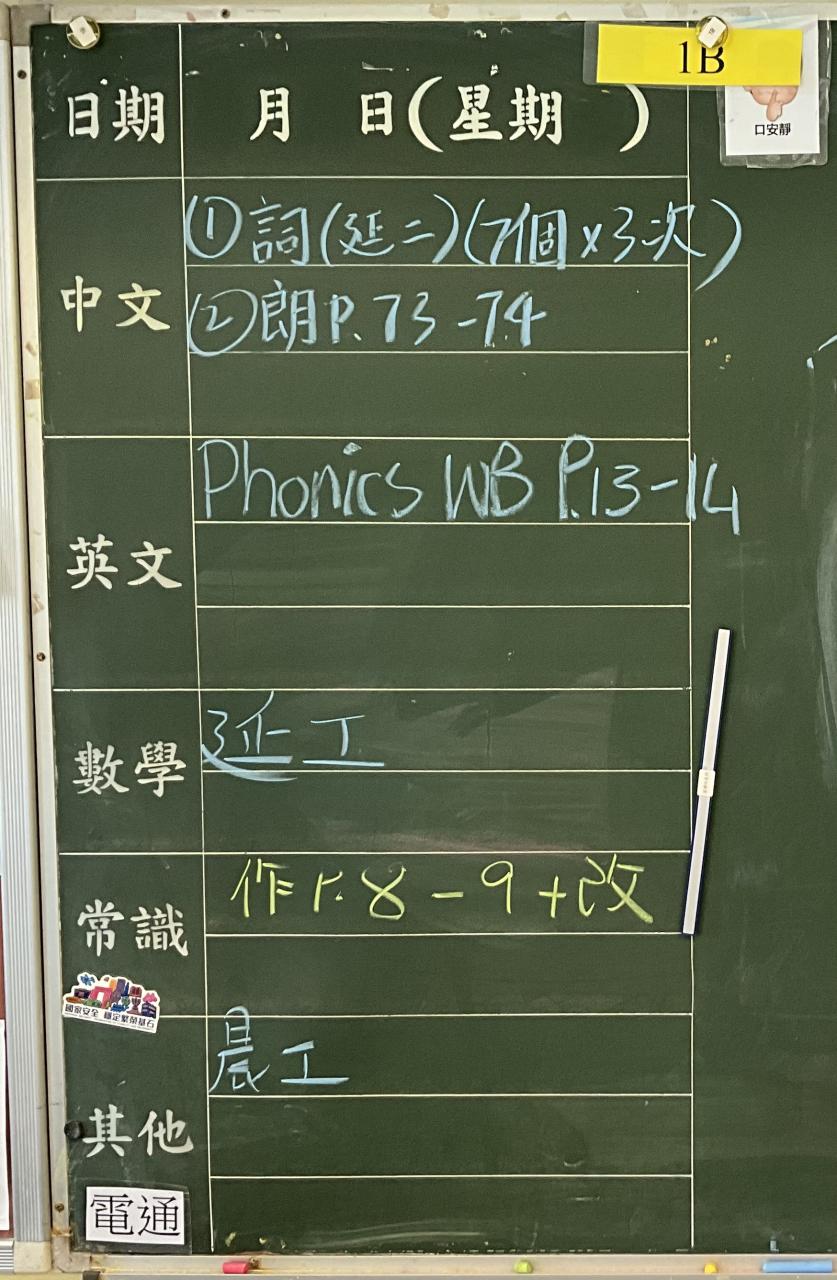 1B
口安靜
日期 月 日(星期 )
中文
①詞(延二)(7個×3次)
②朗P.73-74
英文
Phonics WB P.13-14
數學
延工
常識
作P.8-9+改
國家安全 穩定繁榮基石
其他
晨工
電通